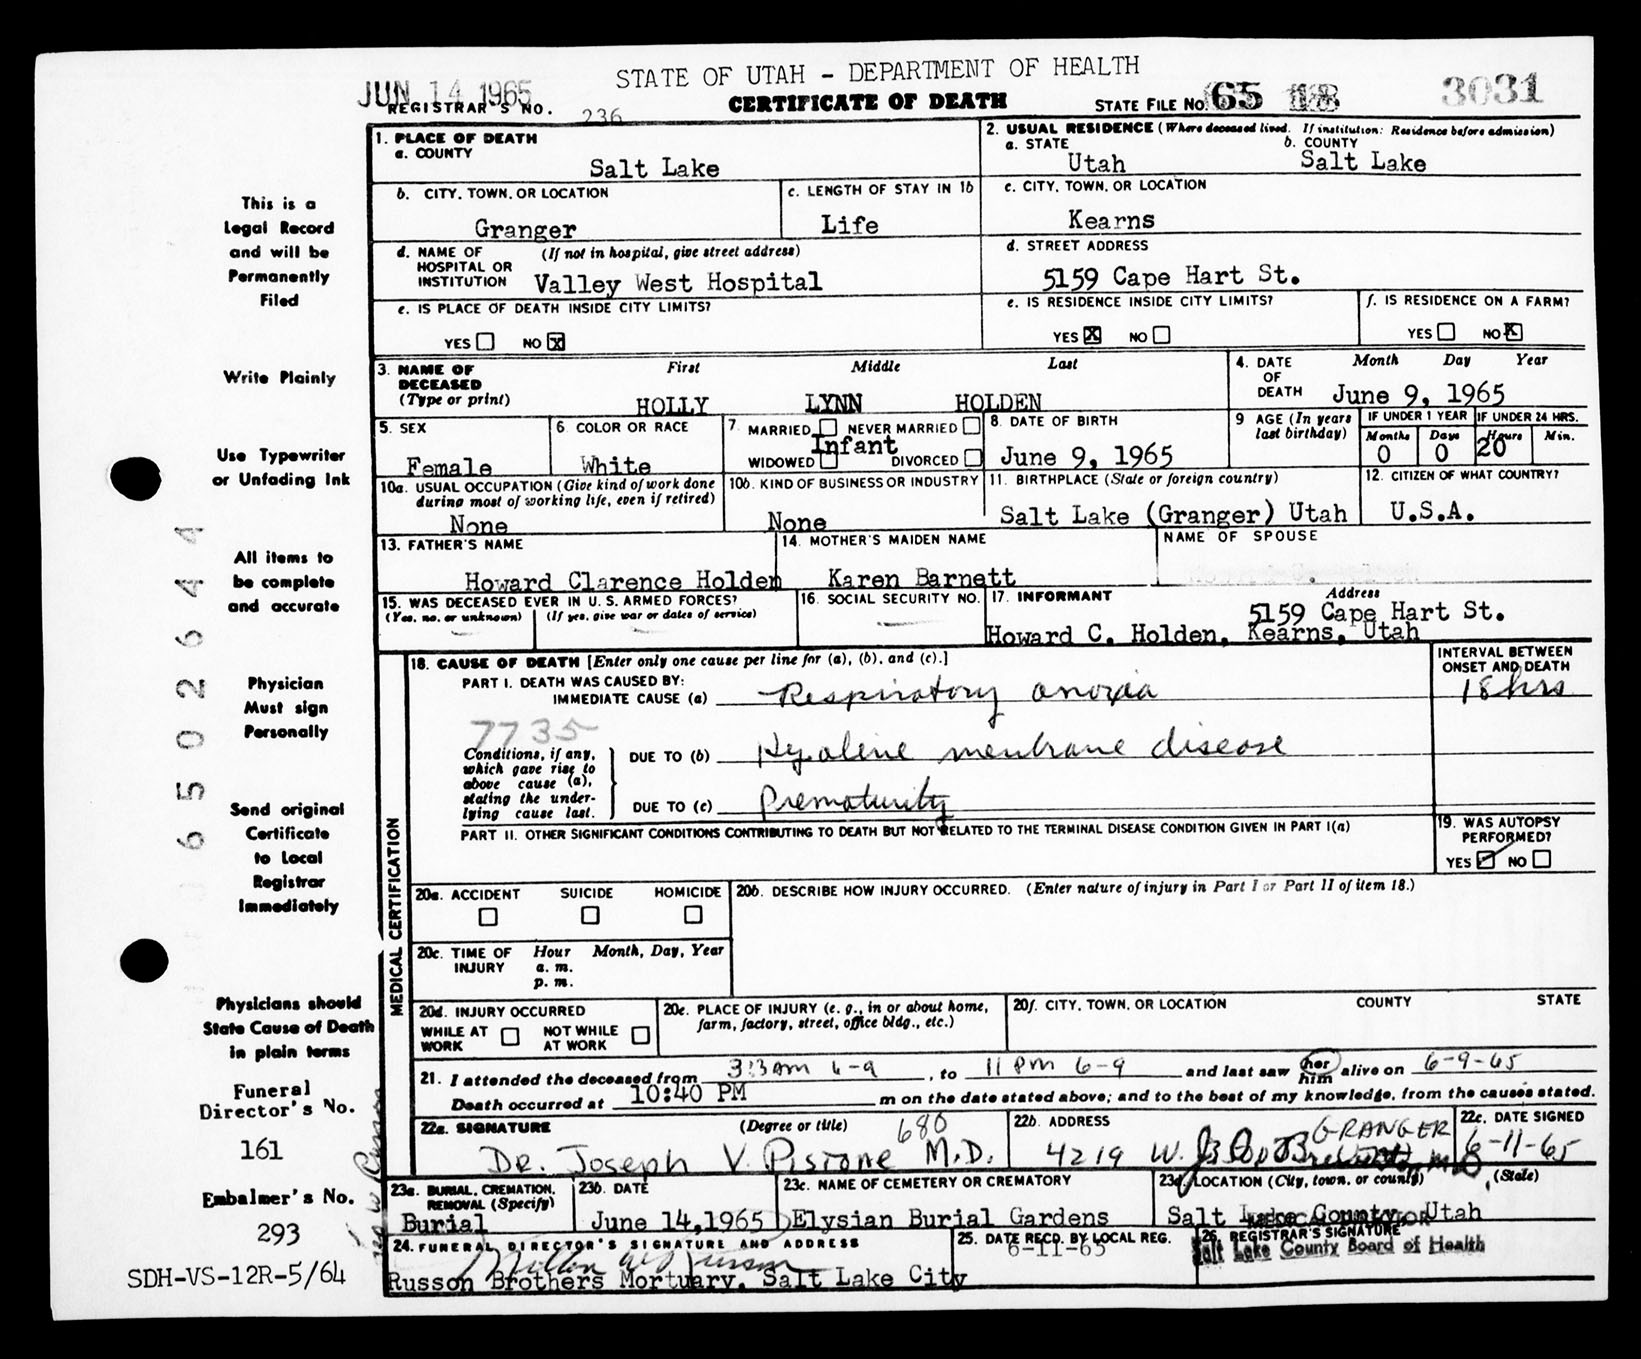 STATE OF UTAH - DEPARTMENT OF HEALTH
JUN 14 1965
REGISTRAR'S NO. 236
CERTIFICATE OF DEATH
STATE FILE NO. 65 18 3031
1. PLACE OF DEATH
a. COUNTY
Salt Lake
2. USUAL RESIDENCE (Where deceased lived. If institution: Residence before admission)
a. STATE b. COUNTY
Utah Salt Lake
b. CITY, TOWN, OR LOCATION
Granger
c. LENGTH OF STAY IN 1b
Life
c. CITY, TOWN, OR LOCATION
Kearns
d. NAME OF HOSPITAL OR INSTITUTION (If not in hospital, give street address)
Valley West Hospital
d. STREET ADDRESS
5159 Cape Hart St.
e. IS PLACE OF DEATH INSIDE CITY LIMITS?
YES NO X
e. IS RESIDENCE INSIDE CITY LIMITS?
YES X NO
f. IS RESIDENCE ON A FARM?
YES NO X
3. NAME OF DECEASED (Type or print)
First Middle Last
HOLLY LYNN HOLDEN
4. DATE OF DEATH Month Day Year
June 9, 1965
5. SEX
Female
6. COLOR OR RACE
White
7. MARRIED NEVER MARRIED
Infant
WIDOWED DIVORCED
8. DATE OF BIRTH
June 9, 1965
9 AGE (In years last birthday)
IF UNDER 1 YEAR IF UNDER 24 HRS.
Months Days Hours Min.
0 0 20
10a. USUAL OCCUPATION (Give kind of work done during most of working life, even if retired)
None
10b. KIND OF BUSINESS OR INDUSTRY
None
11. BIRTHPLACE (State or foreign country)
Salt Lake (Granger) Utah
12. CITIZEN OF WHAT COUNTRY?
U.S.A.
13. FATHER'S NAME
Howard Clarence Holden
14. MOTHER'S MAIDEN NAME
Karen Barnett
NAME OF SPOUSE
15. WAS DECEASED EVER IN U.S. ARMED FORCES?
(Yes, no, or unknown) (If yes, give war or dates of service)
16. SOCIAL SECURITY NO.
17. INFORMANT Address
5159 Cape Hart St.
Howard C. Holden, Kearns, Utah
18. CAUSE OF DEATH [Enter only one cause per line for (a), (b), and (c).]
PART I. DEATH WAS CAUSED BY:
IMMEDIATE CAUSE (a) Respiratory anoxia
INTERVAL BETWEEN ONSET AND DEATH
18 hrs
7735
Conditions, if any, which gave rise to above cause (a), stating the underlying cause last.
DUE TO (b) Hyaline menbrane disease
DUE TO (c) Prematurity
PART II. OTHER SIGNIFICANT CONDITIONS CONTRIBUTING TO DEATH BUT NOT RELATED TO THE TERMINAL DISEASE CONDITION GIVEN IN PART I(a)
19. WAS AUTOPSY PERFORMED?
YES NO
MEDICAL CERTIFICATION
20a. ACCIDENT SUICIDE HOMICIDE
20b. DESCRIBE HOW INJURY OCCURRED. (Enter nature of injury in Part I or Part II of item 18.)
20c. TIME OF INJURY Hour Month, Day, Year
a. m.
p. m.
20d. INJURY OCCURRED
WHILE AT WORK NOT WHILE AT WORK
20e. PLACE OF INJURY (e. g., in or about home, farm, factory, street, office bldg., etc.)
20f. CITY, TOWN, OR LOCATION COUNTY STATE
21. I attended the deceased from 6-9, to 11 PM 6-9 and last saw her him alive on 6-9-65
Death occurred at 10:40 PM m on the date stated above; and to the best of my knowledge, from the causes stated.
22a. SIGNATURE (Degree or title) 680
Dr. Joseph V. Pistone M.D.
22b. ADDRESS
GRANGER
4219 W.
22c. DATE SIGNED
6-11-65
23a. BURIAL, CREMATION, REMOVAL (Specify)
Burial
23b. DATE
June 14, 1965
23c. NAME OF CEMETERY OR CREMATORY
Elysian Burial Gardens
23d. LOCATION (City, town, or county) (State)
Salt Lake County, Utah
24. FUNERAL DIRECTOR'S SIGNATURE AND ADDRESS
Russon Brothers Mortuary, Salt Lake City
25. DATE RECD. BY LOCAL REG.
6-11-65
26. REGISTRAR'S SIGNATURE
Salt Lake County Board of Health
This is a
Legal Record
and will be
Permanently
Filed
Write Plainly
Use Typewriter
or Unfading Ink
All items to
be complete
and accurate
Physician
Must sign
Personally
Send original
Certificate
to Local
Registrar
Immediately
Physicians should
State Cause of Death
in plain terms
Funeral
Director's No.
161
Embalmer's No.
293
SDH-VS-12R-5/64
6502644